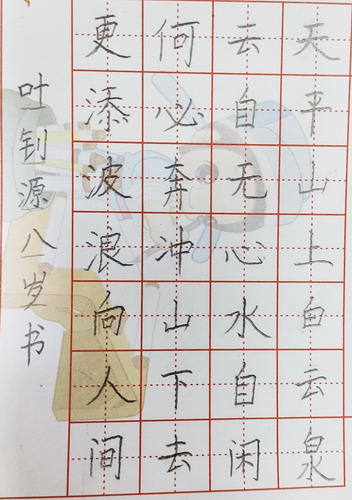 天平山上白云泉
云自无心水自闲
何必奔冲山下去
更添波浪向人间
吐钊源八岁书